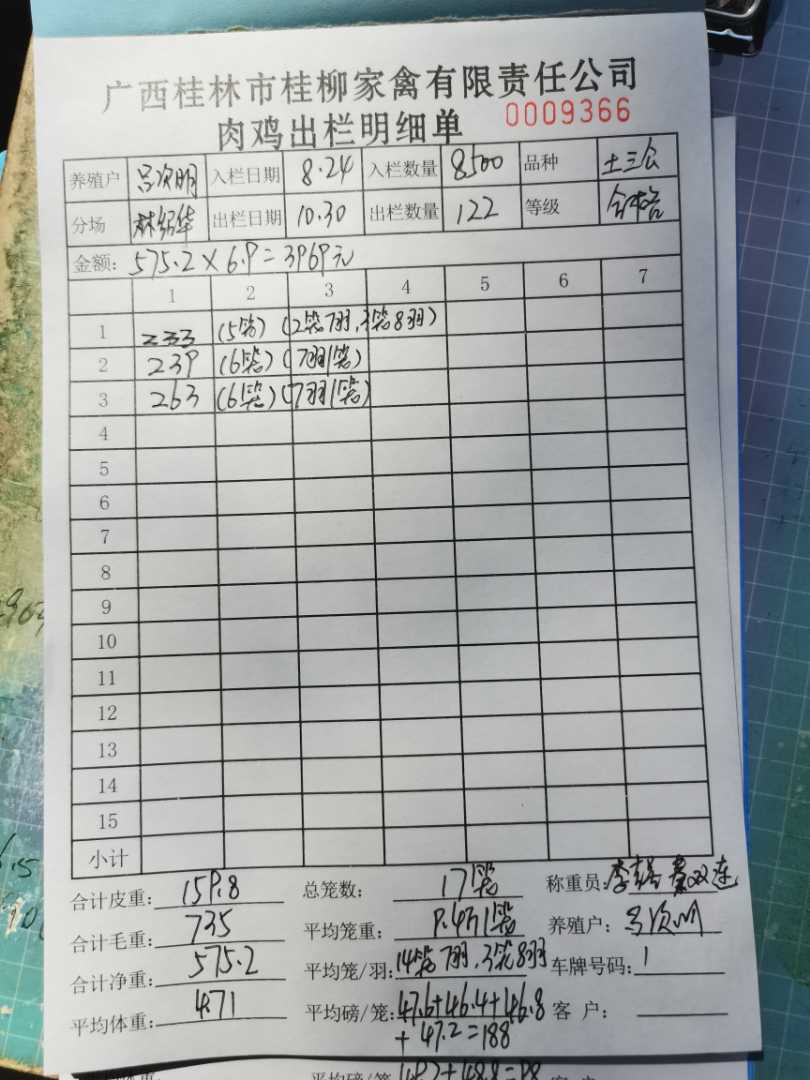 广西桂林市桂柳家禽有限责任公司
肉鸡出栏明细单 0009366
养殖户 吕次明 入栏日期 8.24 入栏数量 8500 品种 土三公
分场 林绍华 出栏日期 10.30 出栏数量 122 等级
金额: 575.2×6.9=3969元
1 2 3 4 5 6 7
1 233 (5笼) (2笼7羽,3笼8羽)
2 239 (6笼) (7羽1笼)
3 263 (6笼) (7羽1笼)
4
5
6
7
8
9
10
11
12
13
14
15
小计
合计皮重: 159.8 总笼数: 17笼 称重员:
合计毛重: 735 平均笼重: 9.4/1笼 养殖户: 吕次明
合计净重: 575.2 平均笼/羽: 14笼7羽,3笼8羽 车牌号码: 1
平均体重: 4.71 平均磅/笼: 47.6+46.4+46.8 客 户:
+ 47.2=188